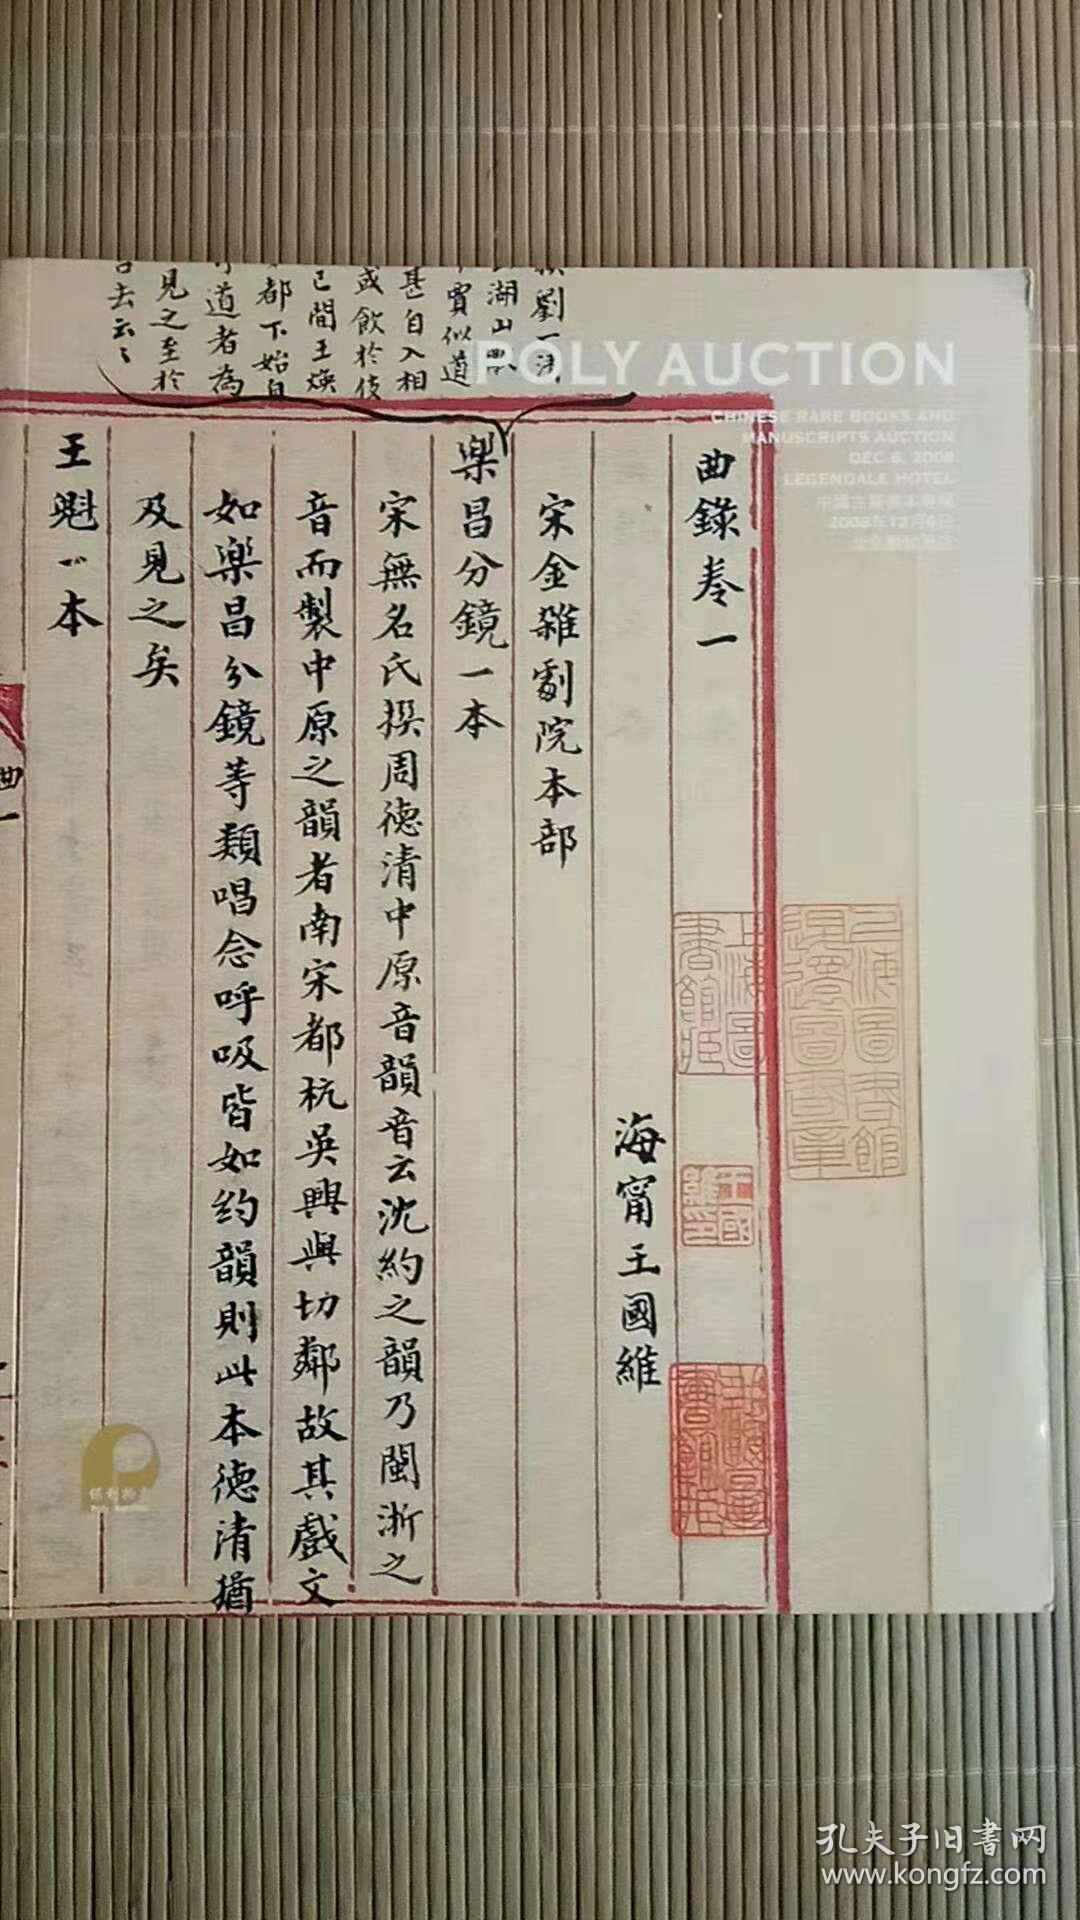 POLY AUCTION
CHINESE RARE BOOKS AND
MANUSCRIPTS AUCTION
DEC 6, 2008
LEGENDALE HOTEL
2008年12月6日
劉一清
湖山
賈似道
甚自入相
或飲於伎
已間王煥
都下始自
道者為
見之至於
去云云
曲錄卷一
海甯王國維
宋金雜劇院本部
樂昌分鏡一本
宋無名氏撰周德清中原音韻音云沈約之韻乃閩浙之
音而製中原之韻者南宋都杭吳興與切鄰故其戲文
如樂昌分鏡等類唱念呼吸皆如約韻則此本德清猶
及見之矣
王魁一本
曲一
上海圖書館
王國維
保利拍賣
孔夫子旧書网
www.kongfz.com